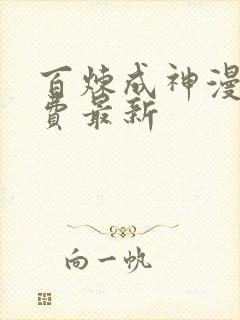 百炼成神漫
费最新
向一帆